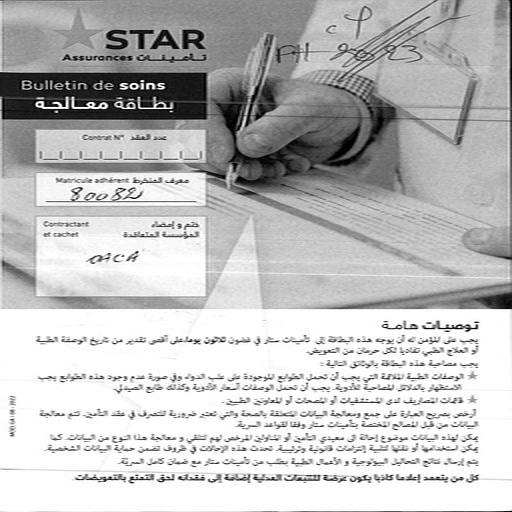 STAR
Assurances تأمينات
Bulletin de soins
بطاقة معالجة
Contrat N° عدد العقد
Matricule adhérent معرف المنخرط
80082
Contractant et cachet
ختم و إمضاء المؤسسة المتعاقدة
توصيات هامة
يجب على المؤمن له أن يوجه هذه البطاقة إلى تأمينات ستار في غضون ثلاثون يوما،على أقصى تقدير من تاريخ الوصفة الطبية
أو العلاج الطبي تفاديا لكل حرمان من التعويض.
يجب مصاحبة هذه البطاقة بالوثائق التالية :
الوصفات الطبية الملائمة التي يجب أن تحمل الطوابع الموجودة على علب الدواء وفي صورة عدم وجود هذه الطوابع يجب
الاستظهار بالدلائل المصاحبة للأدوية. يجب أن تحمل الوصفات أسعار الأدوية وكذلك طابع الصيدلي.
قائمات المصاريف لدى المستشفيات أو المصحات أو المعاونين الطبيين.
أرخص بصريح العبارة على جمع ومعالجة البيانات المتعلقة بالصحة والتي تعتبر ضرورية للتصرف في عقد التأمين. تتم معالجة
البيانات من قبل المصالح المختصة بتأمينات ستار وفقا لقواعد السرية.
يمكن لهذه البيانات موضوع إحالة إلى معيدي التأمين أو المناولين المرخص لهم لتلقي و معالجة هذا النوع من البيانات. كما
يمكن استخدامها أو نقلها لتلبية إلتزامات قانونية وترتيبية. تحدث هذه الإحالات في ظروف تضمن حماية البيانات الشخصية.
يتم إرسال نتائج التحاليل البيولوجية و الأعمال الطبية بطلب من تأمينات ستار مع ضمان كامل السرية.
كل من يتعمد إعلاما كاذبا يكون عرضة للتتبعات العدلية إضافة إلى فقدانه لحق التمتع بالتعويضات.